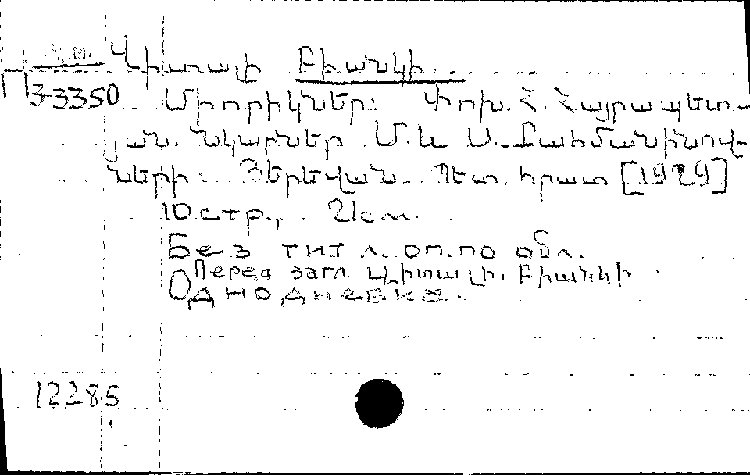 Վիտալի Բիանկի
П 3-3350 Միօրիկներ: Փոխ. Հ. Հայրապետ-
յան. Նկարներ Մ. և Ս. Րաիմանինով-
ների. Յերեվան. Պետ. հրատ [1929]
10 стр., 21 см.
Без тит л. оп. по обл.
Перед загл Վիտալի Բիանկի
Однодневка.
12285